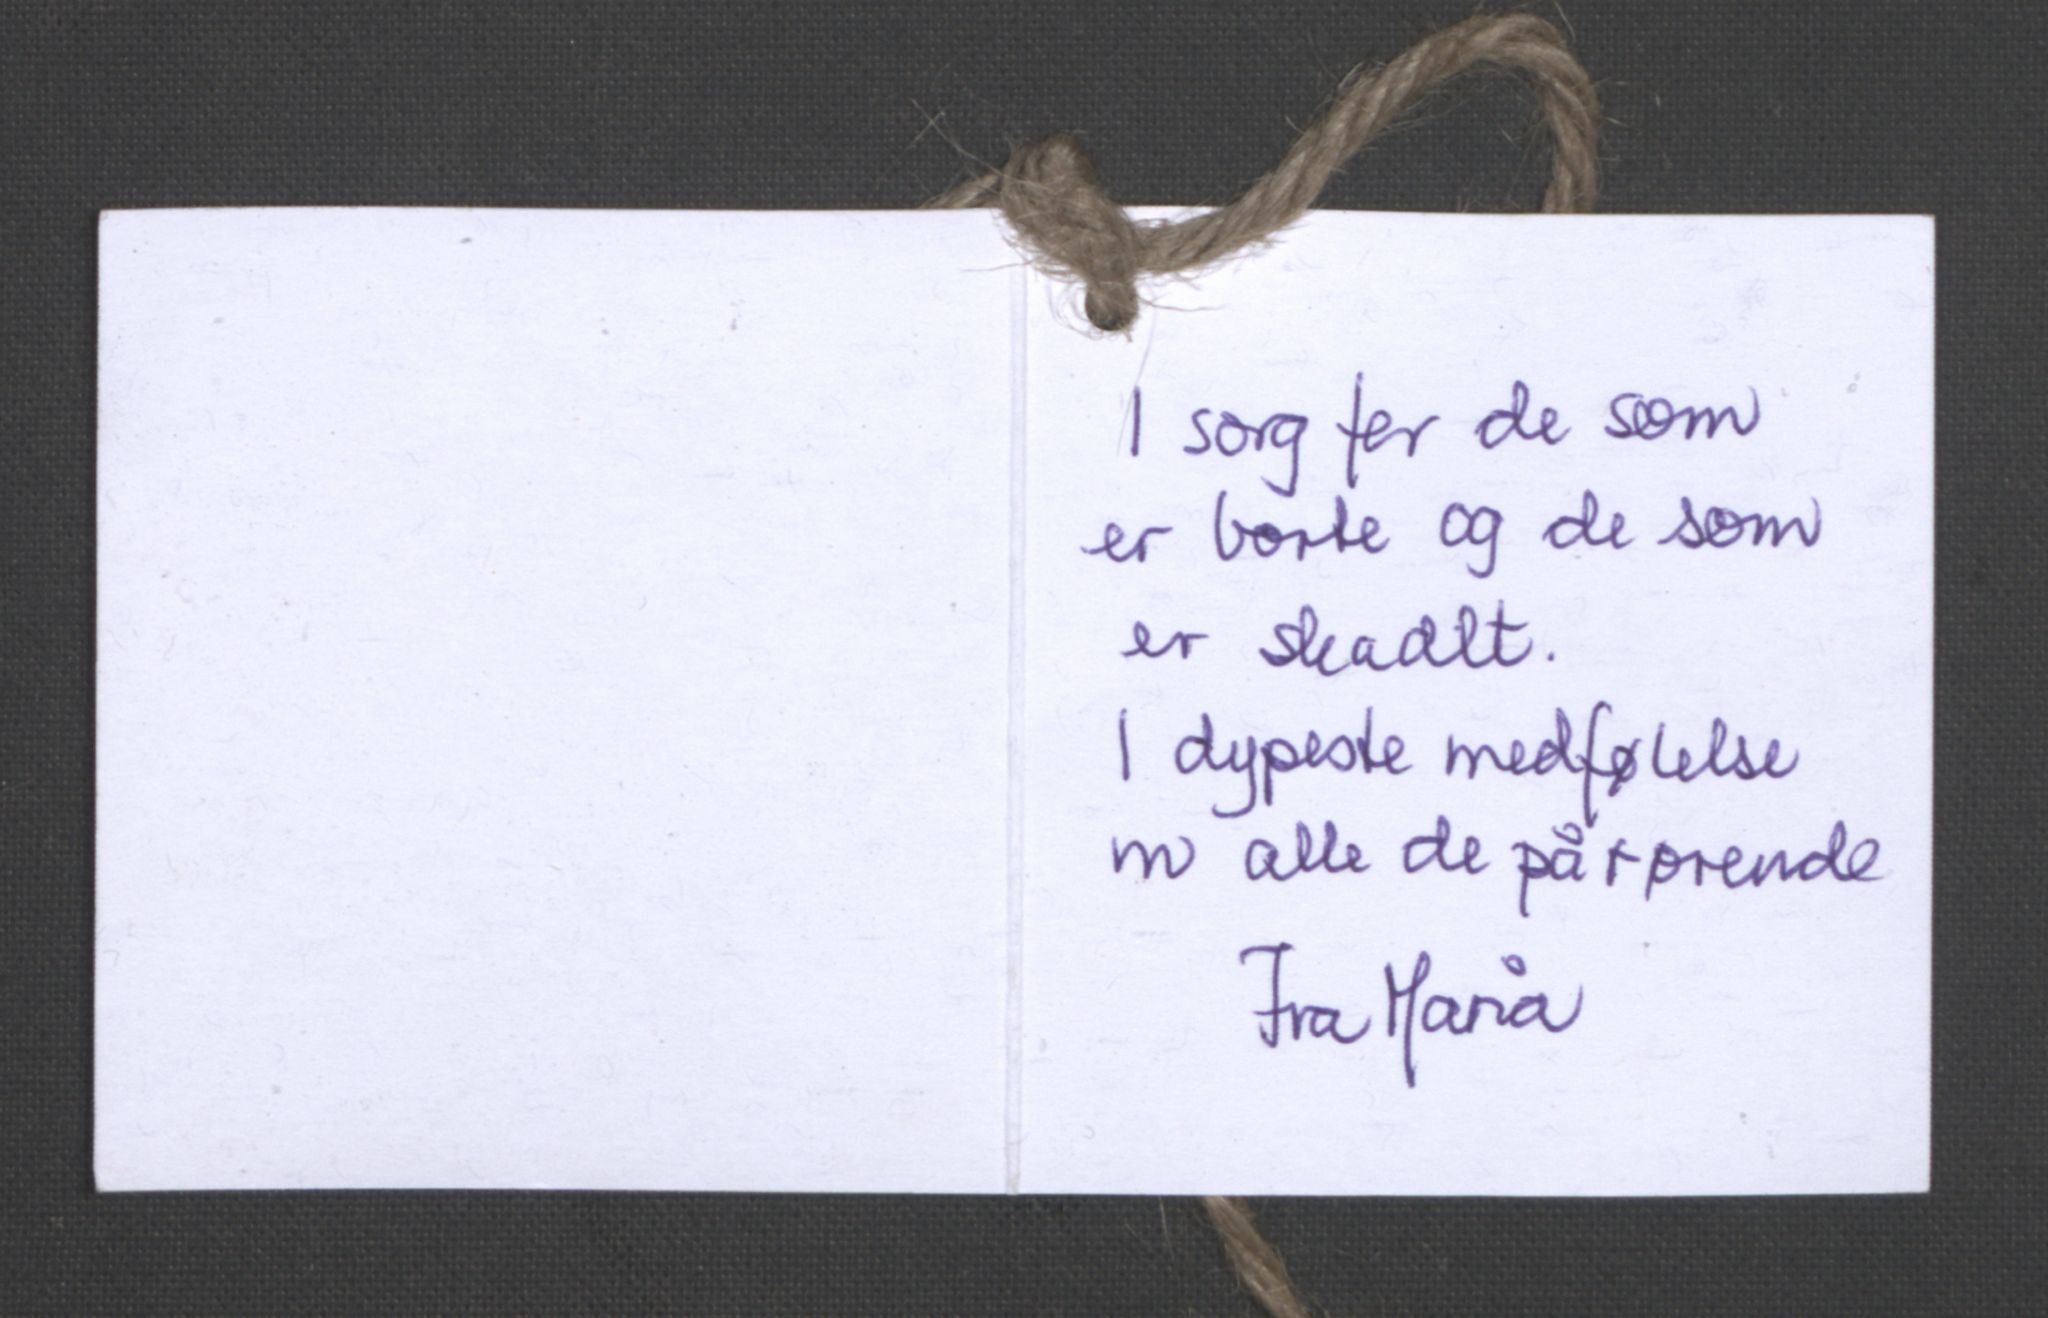 I sorg for de som
er borte og de som
er skadlt.
I dypeste medfølelse
m alle de pårørende
Fra Maria